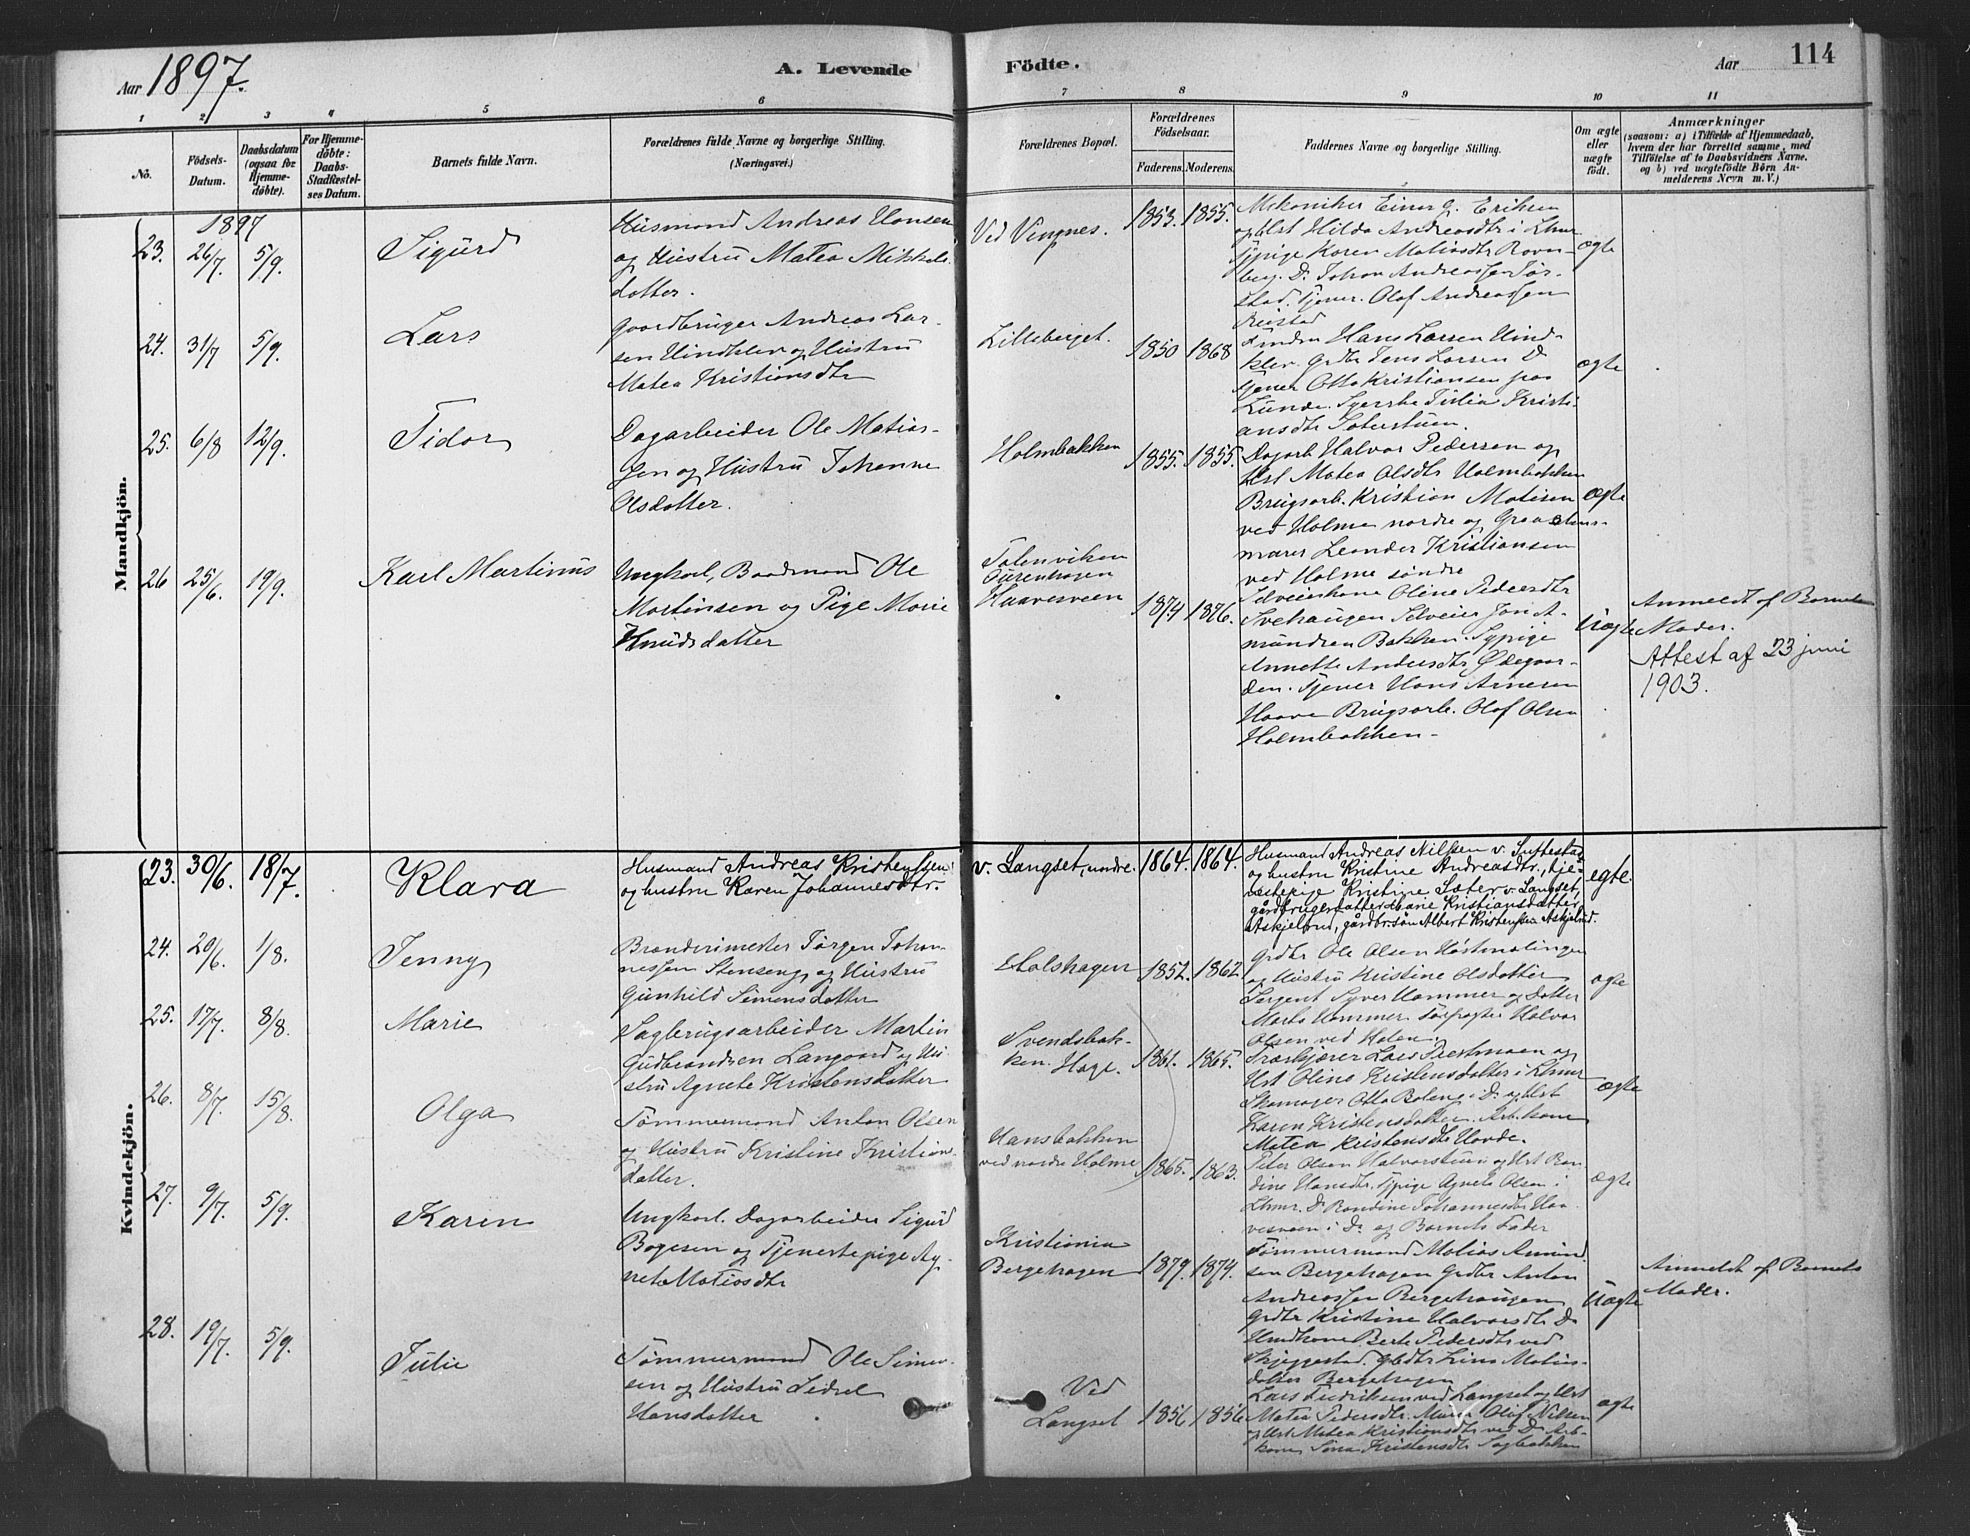 Aar 1897.
A. Levende
Födte.
Aar
114
1 2 3 4 5 6
7 8 9 10 11
No.
Födsels-
Datum.
Daabsdatum
(ogsaa for
Hjemme-
döbte).
For Hjemme-
döbte:
Daabs-
Stadfæstel-
ses Datum.
Barnets fulde Navn.
Forældrenes fulde Navne og borgerlige Stilling.
(Næringsvei.)
Forældrenes Bopæl.
Forældrenes
Födselsaar.
Faderens. Moderens.
Faddernes Navne og borgerlige Stilling.
Om ægte
eller
uægte
födt.
Anmærkninger
(saasom: a) i Tilfælde af Hjemmedaab,
hvem der har forrettet samme, med
Tilföielse af to Daabsvidners Navne.
og b) ved uægtefödte Börn An-
melderens Navn m. V.)
Mandkjön.
1897
23. 26/7 5/9. Sigurd
Husmand Andreas Hansen
og Hustru Matea Mikkels
datter.
Ved Vingnes. 1853. 1855.
Mekaniker Einar G. Eriksen
og Hst Hilda Andreasdtr i Lhmr
Sypige Karen Matiasdtr Ravn-
berg. D. Johan Andreassen Jør-
stad. Tjener. Olaf Andreassen
Reistad
ægte
24. 31/7 5/9. Lars
Gaardbruger Andreas Lar-
sen Vindklev og Hustru
Matea Kristiansdtr
Lilleberget. 1850 1868
Hans Larsen Vind-
klev. Grdbr Jens Larsen D
Tjener Otto Kristiansen paa
Lunde. Syerske Julia Kristi-
ansdtr
ægte
25. 6/8 12/9. Tidor
Dagarbeider Ole Matias-
sen og Hustru Johanne
Olsdatter.
Holmbakken 1855. 1855.
Dagarb Halvor Pedersen og
Hst Matea Olsdtr Holmbakken
Brugsarb. Kristian Matisen
ved Holme nordre og Graa
marer Leander Kristiansen
ved Holme søndre
ægte
26 25/6. 19/9. Karl Martinus
Ungkarl, Baadmand Ole
Martinsen og Pige Marie
Knudsdatter
Totenviken
Haavesveen 1874 1876.
Selveierkone Oline Pedersdtr
Svehaugen Selveier Jon A-
mundsen Bakken. Sypige
Annette Andersdtr Ødegaar-
den. Tjener Hans Arnesen
Haave Brugsarb. Olaf Olsen
Holmbakken-
Uægte
Anmeldt af Barnets
Moder.
Attest af 23 juni
1903.
Kvindekjön.
23. 30/6. 18/7. Klara
Husmand Andreas Kristensen
og hustru Karen Johannesdtr.
v. Langset, nordre. 1864. 1864.
Husmand Andreas Nilsen v. Suttestad
og hustru Kristine Andreasdtr, tje-
nestepige Kristine Sæter v. Langset,
gårdbrugerdatter Marie Kristiansdatter
Askjelrud, gårdbr.søn Albert Kristensen Askjelrud.
egte.
24. 20/6. 1/8. Jenny
Brænderimester Jørgen Johan-
nessen Stenseng og Hustru
Gunhild Simensdatter
Holshagen 1852. 1862.
Grdbr Ole Olsen
og Hustru Kristine Olsdatter
Sergent Syver Hammer og Datter
Hammer. Halvor
Olsen ved Holen.
ægte
25. 17/7. 8/8. Marie
Sagbrugsarbeider Martin
Gudbrandsen Langaard og Hu-
stru Agnete Kristensdatter
Svendsbak-
ken. Hage. 1861. 1865.
Træskjærer Lars Prestmoen og
Hst Oline Kristensdatter i Lhmr
Skomager Otto i D. og Hst
Karen Kristensdatter. Arb.kone
Matea Kristensdtr Hovde.
ægte
26. 8/7. 15/8. Olga
Tømmermand Anton Olsen
og Hustru Kristine Kristians-
datter.
Hansbakken
ved nordre Holme 1865. 1863.
Peter Olsen Halvorstuen og Hst Ran-
dine Hansdtr. Sypige Agnete Olsen i
Lhmr. D Randine Johannesdtr Haa-
vesveen i D. og Barnets Fader
ægte
27. 9/7. 5/9. Karen
Ungkarl. Dagarbeider Sigurd
Bogesen og Tjenestepige Ag-
nete Matiasdtr
Kristiania
Bergehagen 1879. 1874.
Tømmermand Matias Amund
sen Bergehagen Grdbr Anton
Andreassen Bergehaugen
Grdbr Kristine Halvorsdtr D.
Berte Pedersdtr ved
Skjeggestad. Grdbdtr Lina Matias-
datter Bergehagen
Uægte
Anmeldt af Barnets
Moder.
28. 19/7. 5/9. Julie
Tømmermand Ole Simen-
sen og Hustru Sidsel
Hansdatter
Ved
Langset 1856 1856
Lars Fredriksen ved Langset og Hst
Matea Pedersdtr. Murer Olaf Nilsen
og Hst Matea Kristiansdtr ved D. Arb-
kone Sina Kristensdtr Sagbakken
ægte